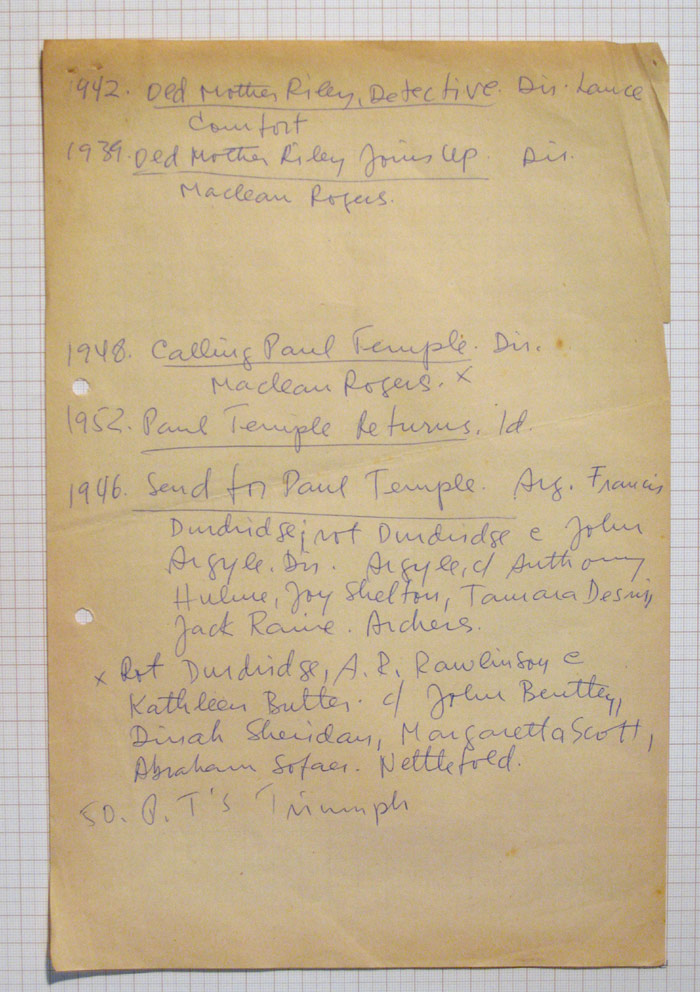 1942. Old Mother Riley, Detective. Dir. Lance
Comfort
1939. Old Mother Riley Joins Up. Dir.
Maclean Rogers.
1948. Calling Paul Temple. Dir.
Maclean Rogers. x
1952. Paul Temple Returns. Id.
1946. Send for Paul Temple. Arg. Francis
Durdridge; rot Durdridge e John
Argyle. Dir. Argyle, c/ Anthony
Hulme, Joy Shelton, Tamara Desni,
Jack Raine. Archers.
x Rot Durdridge, A. R. Rawlinson e
Kathleen Butler. c/ John Bentley,
Dinah Sheridan, Margaretta Scott,
Abraham Sofaer. Nettlefold.
50. P. T's Triumph